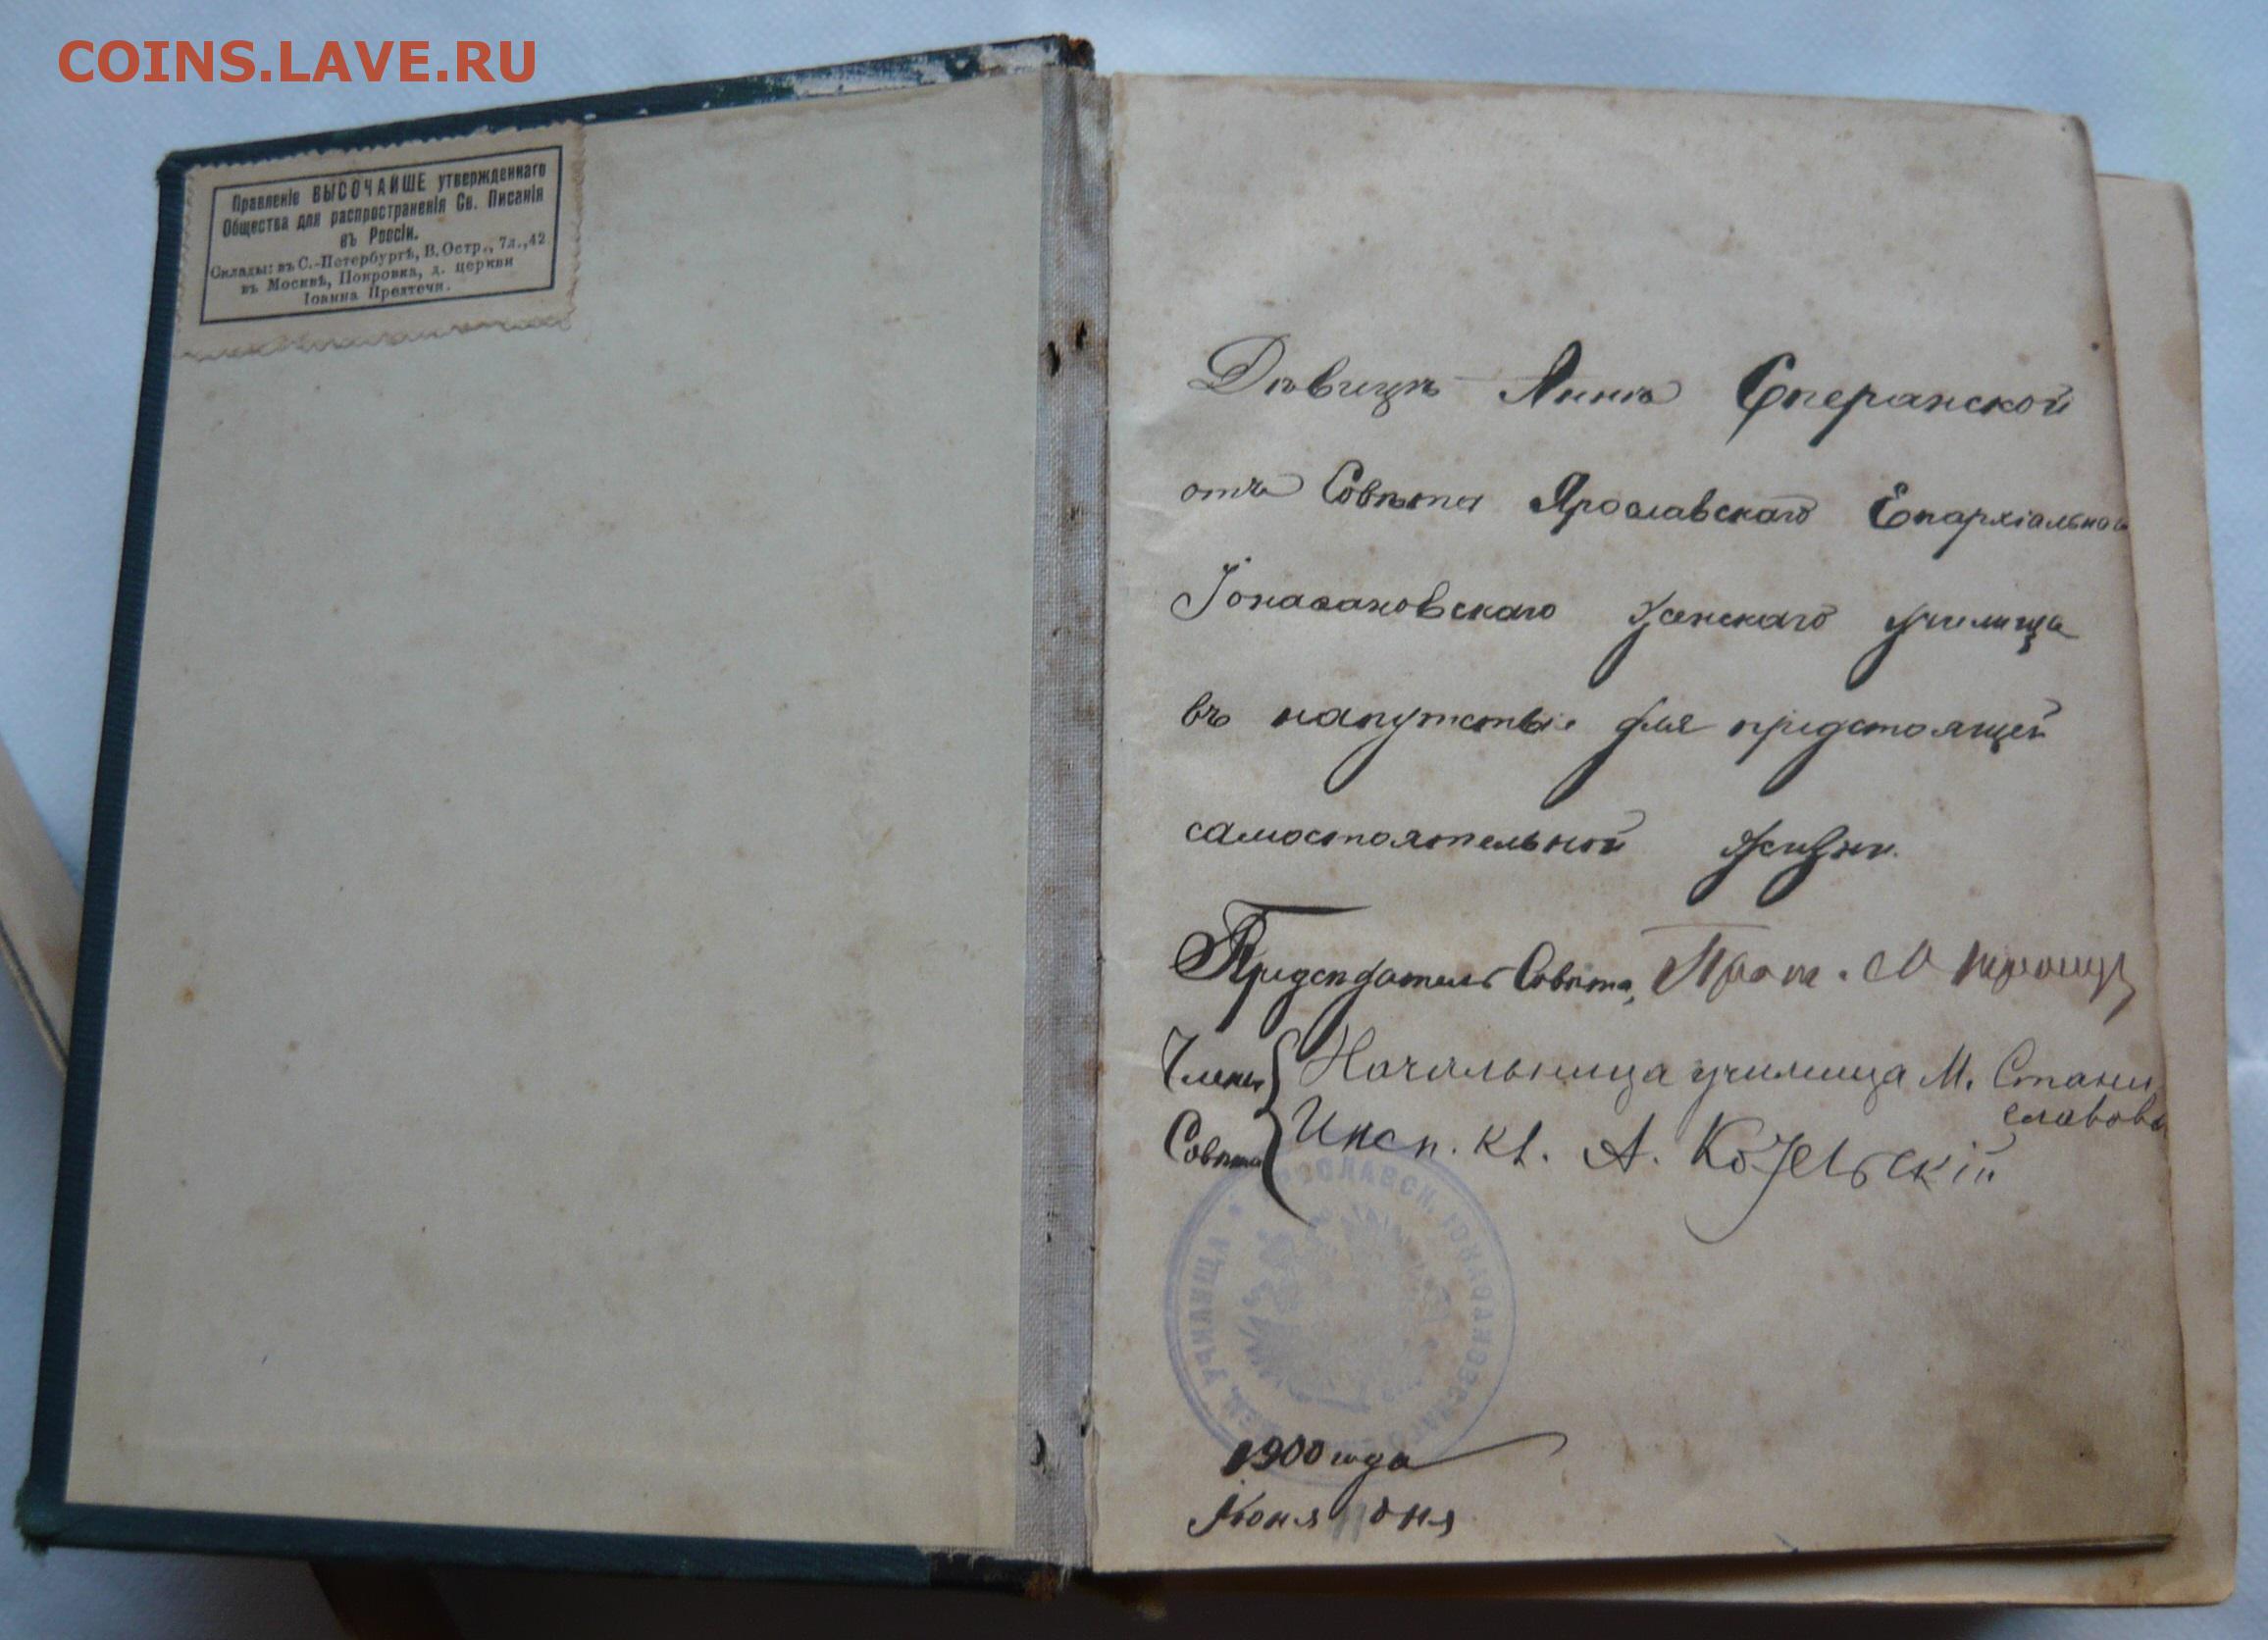 COINS.LAVE.RU
Правленіе ВЫСОЧАЙШЕ утвержденнаго
Общества для распространенія Св. Писанія
въ Россіи.
Склады: въ С.-Петербургѣ, В. Остр., 7л., 42
въ Москвѣ, Покровка, д. церкви
Іоанна Предтечи.
Дѣвицѣ Аннѣ Сперанской
отъ Совѣта Ярославскаго Епархіальнаго
Іонаѳановскаго женскаго училища
въ напутствіе для предстоящей
самостоятельной жизни.
Предсѣдатель Совѣта, Прот.
Члены Начальница училища М. Стани
славова
Совѣта Инсп. кл. А. Козельскій
ЯРОСЛАВСК. ІОНАѲАНОВСКАГО ЖЕН. УЧИЛИЩА
1900 года
Іюня 11 дня